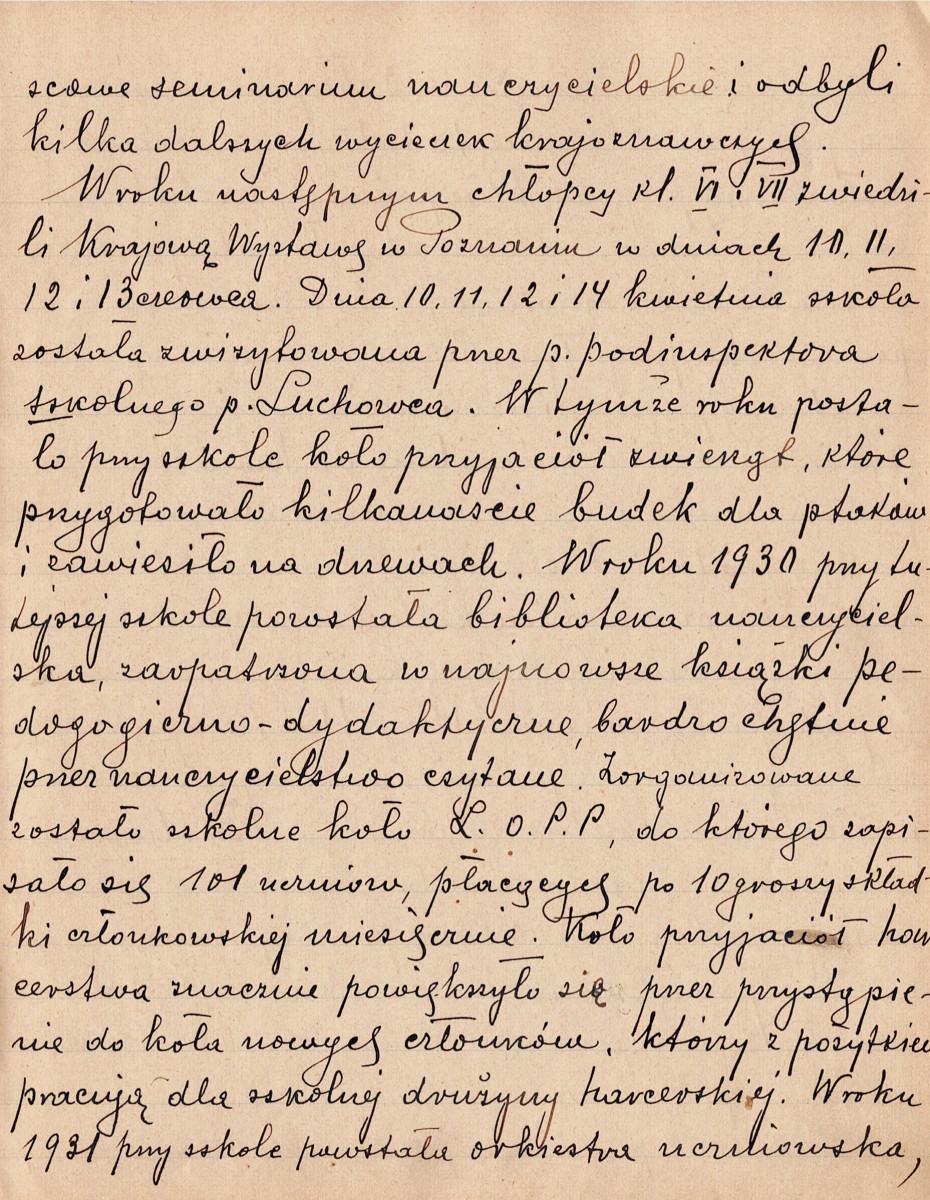 scowe seminarium nauczycielskie i odbyli
kilka dalszych wycieczek krajoznawczych.
W roku następnym chłopcy kl. VI i VII zwiedzi-
li Krajową Wystawę w Poznaniu w dniach 10, 11,
12 i 13 czerwca. Dnia 10, 11, 12 i 14 kwietnia szkoła
została zwizytowana przez p. podinspektora
szkolnego p. Luchowca. W tymże roku posta-
ło przy szkole koło przyjaciół zwierząt, które
przygotowało kilkanaście budek dla ptaków
i zawiesiło na drzewach. W roku 1930 przy tu-
tejszej szkole powstała biblioteka nauczyciel-
ska, zaopatrzona w najnowsze książki pe-
dogogiczno-dydaktyczne, bardzo chętnie
przez nauczycielstwo czytane. Zorganizowane
zostało szkolne koło L. O. P. P, do którego zapi-
sało się 101 uczniów, płacących po 10 groszy skład-
ki członkowskiej miesięcznie. Koło przyjaciół har
cerstwa znacznie powiększyło się przez przystąpie-
nie do koła nowych członków, którzy z pożytkiem
pracują dla szkolnej drużyny harcerskiej. W roku
1931 przy szkole powstała orkiestra uczniowska,